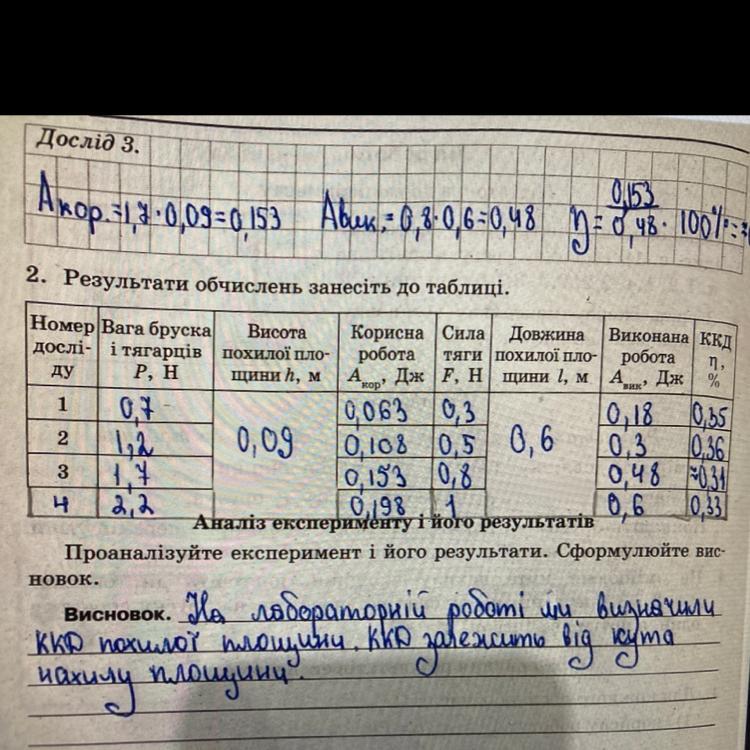 Дослід 3.
Aкор.=1,7·0,09=0,153 Aвик.=0,8·0,6=0,48 η=0,153/0,48·100%=
2. Результати обчислень занесіть до таблиці.
Номер досліду Вага бруска і тягарців P, Н Висота похилої площини h, м Корисна робота Aкор, Дж Сила тяги F, Н Довжина похилої площини l, м Виконана робота Aвик, Дж ККД η, %
1 0,7 0,09 0,063 0,3 0,6 0,18 0,35
2 1,2 0,108 0,5 0,3 0,36
3 1,7 0,153 0,8 0,48 ≈0,31
4 2,2 0,198 1 0,6 0,33
Аналіз експерименту і його результатів
Проаналізуйте експеримент і його результати. Сформулюйте вис-
новок.
Висновок. На лабораторній роботі ми визначили
ККД похилої площини. ККД залежить від кута
нахилу площини.